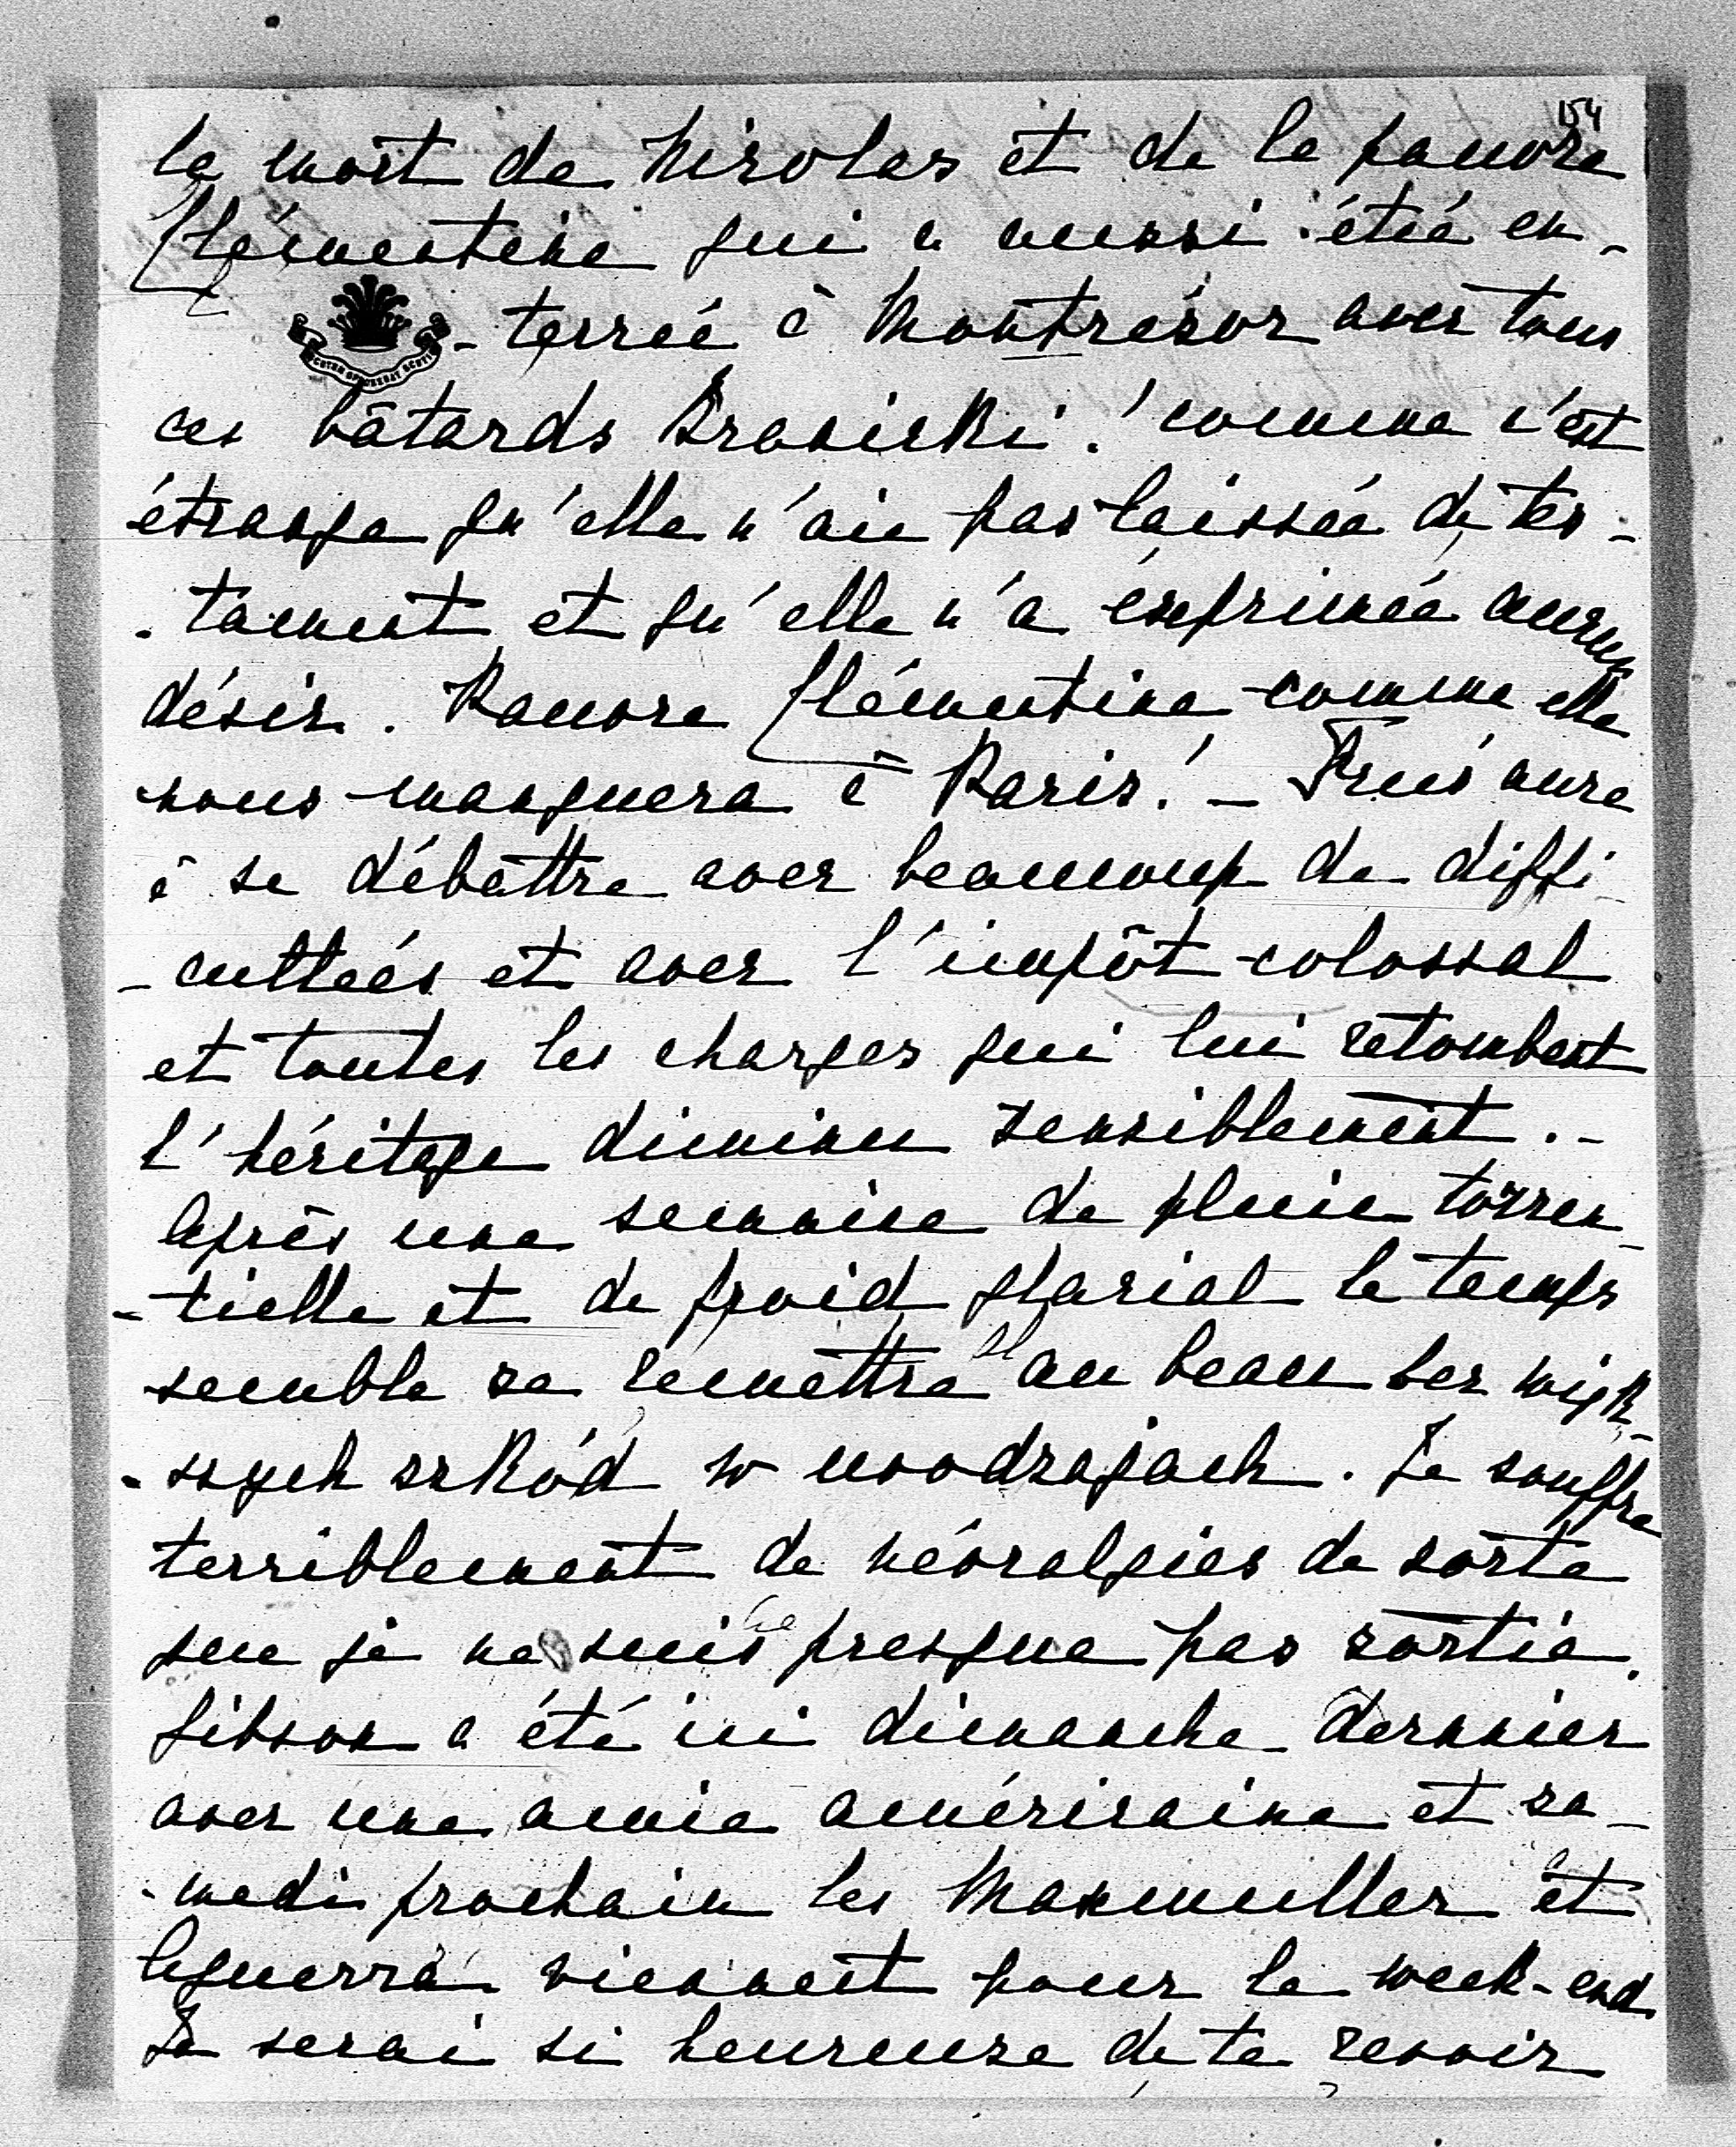 154
la mort de Nicolas et de la pauvre
Clémentine qui a aussi étée en-
-terrée à Montrésor avec tous
ces bâtards Branicki! comme c'est
étrange qu'elle n'aie pas laissée de tes-
-tament et qu'elle n'a éxprimée aucun
désir. Pauvre Clémentine comme elle
nous manquera à Paris! — aura
à se débattre avec beaucoup de diffi-
-cultées et avec l'impôt colossal
et toutes les charges qui lui retombent
l'héritage diminue sensiblement. -
Après une semaine de pluie torren-
-tielle et de froid glacial le temps
semble se remettre au beau bez więk-
-szych szkód w urodzajach. Je souffre
terriblement de névralgies de sorte
que je ne suis presque pas sortie.
Gibson a été ici dimanche dernier
avec une amie américaine et sa-
-medi prochain les Maxmuller et
Aguerra viennent pour le week-end
Je serai si heureuse de te revoir